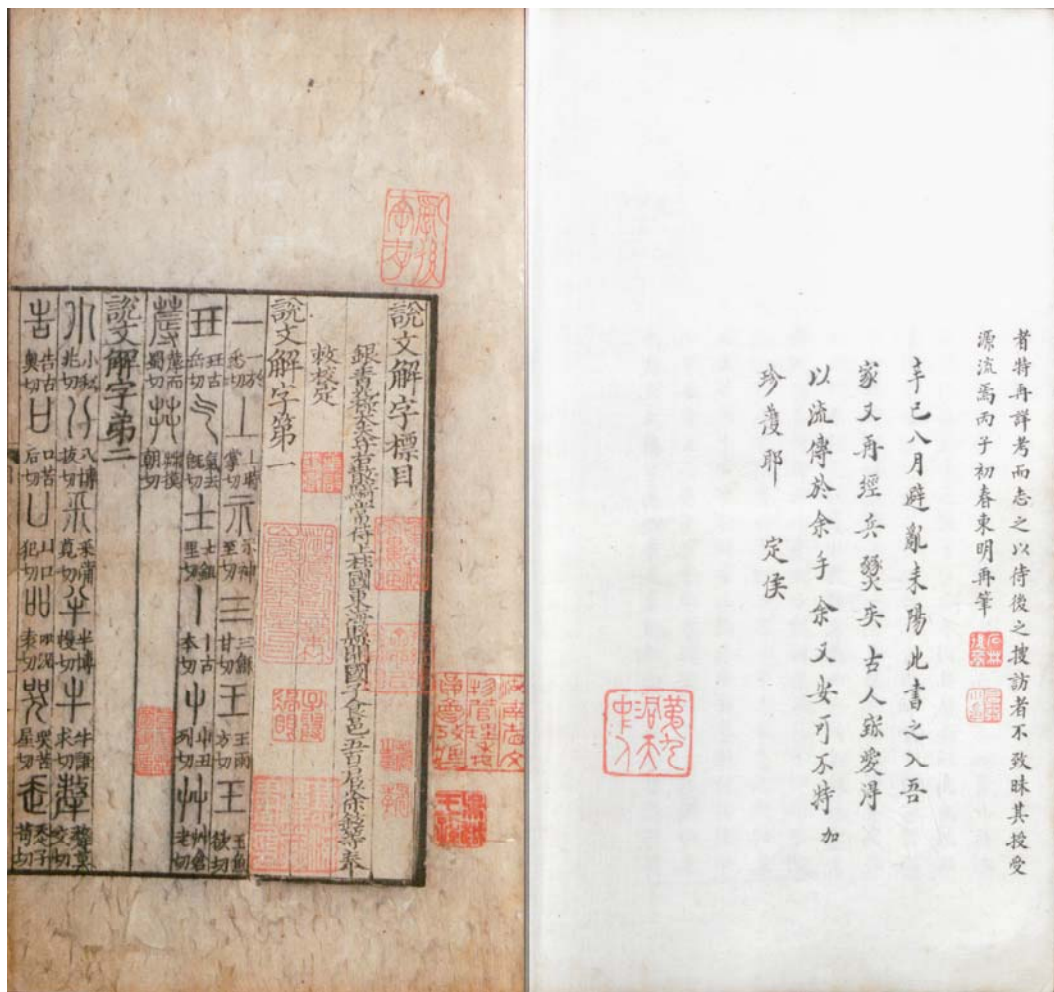 者特再詳考而志之以待後之搜訪者不致昧其授受
源流焉丙子初春東明再筆
辛巳八月避亂耒陽此書之入吾
家又再經兵燹矣古人珎愛得
以流傳於余手余又安可不特加
珍護耶 定侯
說文解字標目
銀青光祿大夫守右散騎常侍上柱國東海縣開國子食邑五百戶徐鉉等奉
敕校定
說文解字第一
一 一於悉切 丄 丄時掌切 示 示神至切 三 三穌甘切 王 王雨方切 王 王魚欲切
玨 玨古岳切 气 气去旣切 士 士鉏里切 丨 丨古本切 屮 屮丑列切 艸 艸倉老切
蓐 蓐而蜀切 茻 茻模朗切
說文解字弟二
小 小私兆切 八 八博拔切 釆 釆蒲莧切 半 半博幔切 牛 牛語求切 犛 犛莫交切
告 告古奧切 口 口苦后切 凵 凵口犯切 吅 吅況袁切 哭 哭苦屋切 走 走子苟切